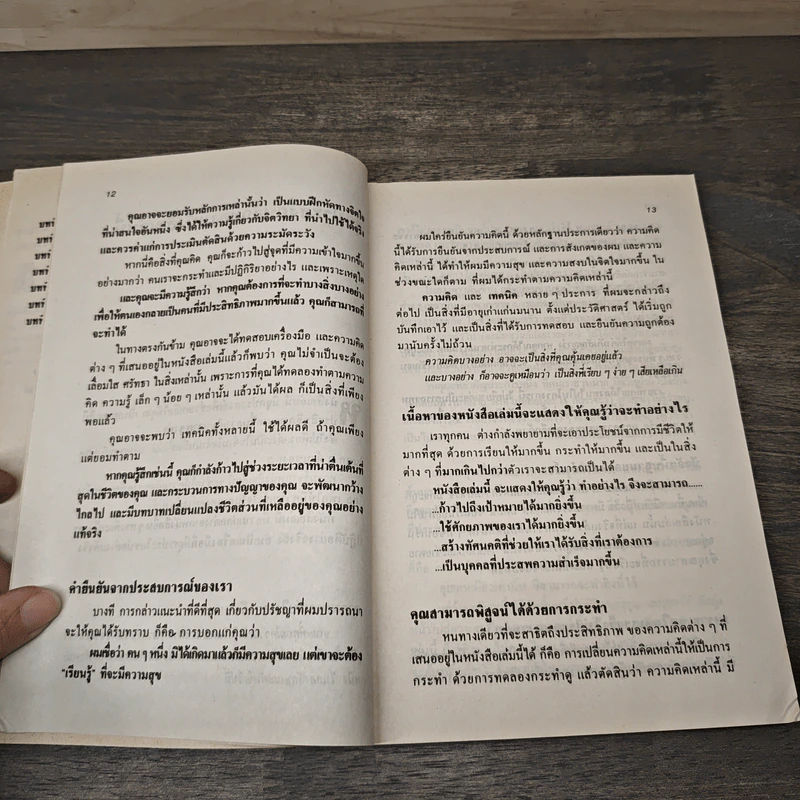 บทร์
บทร์
บทร์
บทร์
บทร์
บทร์
12
คุณอาจจะยอมรับหลักการเหล่านั้นว่า เป็นแบบฝึกหัดทางจิตใจ
ที่น่าสนใจอันหนึ่ง ซึ่งได้ให้ความรู้เกี่ยวกับจิตวิทยา ที่นำไปใช้ได้จริง
และควรค่าแก่การประเมินตัดสินด้วยความระมัดระวัง
หากนี่คือสิ่งที่คุณคิด คุณก็จะก้าวไปสู่จุดที่มีความเข้าใจมากขึ้น
อย่างมากว่า คนเราจะกระทำและมีปฏิกิริยาอย่างไร และเพราะเหตุใด
และคุณจะมีความรู้สึกว่า หากคุณต้องการที่จะทำบางสิ่งบางอย่าง
เพื่อให้ตนเองกลายเป็นคนที่มีประสิทธิภาพมากขึ้นแล้ว คุณก็สามารถที่
จะทำได้
ในทางตรงกันข้าม คุณอาจจะได้ทดสอบเครื่องมือ และความคิด
ต่าง ๆ ที่เสนออยู่ในหนังสือเล่มนี้แล้วก็พบว่า คุณไม่จำเป็นจะต้อง
เลื่อมใส ศรัทธา ในสิ่งเหล่านั้น เพราะการที่คุณได้ทดลองทำตามความ
คิด ความรู้ เล็ก ๆ น้อย ๆ เหล่านั้น แล้วมันได้ผล ก็เป็นสิ่งที่เพียง
พอแล้ว
คุณอาจจะพบว่า เทคนิคทั้งหลายนี้ ใช้ได้ผลดี ถ้าคุณเพียง
แต่ยอมทำตาม
หากคุณรู้สึกเช่นนี้ คุณก็กำลังก้าวไปสู่ช่วงระยะเวลาที่น่าตื่นเต้นที่
สุดในชีวิตของคุณ และกระบวนการทางปัญญาของคุณ จะพัฒนากว้าง
ไกลไป และมีบทบาทเปลี่ยนแปลงชีวิตส่วนที่เหลืออยู่ของคุณอย่าง
แท้จริง
คำยืนยันจากประสบการณ์ของเรา
บางที การกล่าวแนะนำที่ดีที่สุด เกี่ยวกับปรัชญาที่ผมปรารถนา
จะให้คุณได้รับทราบ ก็คือ การบอกแก่คุณว่า
ผมเชื่อว่า คน ๆ หนึ่ง มิได้เกิดมาแล้วก็มีความสุขเลย แต่เขาจะต้อง
"เรียนรู้" ที่จะมีความสุข
13
ผมใคร่ยืนยันความคิดนี้ ด้วยหลักฐานประการเดียวว่า ความคิด
นี้ได้รับการยืนยันจากประสบการณ์ และการสังเกตของผม และความ
คิดเหล่านี้ ได้ทำให้ผมมีความสุข และความสงบในจิตใจมากขึ้น ใน
ช่วงขณะใดก็ตาม ที่ผมได้กระทำตามความคิดเหล่านี้
ความคิด และ เทคนิค หลาย ๆ ประการ ที่ผมจะกล่าวถึง
ต่อไป เป็นสิ่งที่มีอายุเก่าแก่นมนาน ตั้งแต่ประวัติศาสตร์ ได้เริ่มถูก
บันทึกเอาไว้ และเป็นสิ่งที่ได้รับการทดสอบ และยืนยันความถูกต้อง
มานับครั้งไม่ถ้วน
ความคิดบางอย่าง อาจจะเป็นสิ่งที่คุณคุ้นเคยอยู่แล้ว
และบางอย่าง ก็อาจจะดูเหมือนว่า เป็นสิ่งที่เรียบ ๆ ง่าย ๆ เสียเหลือเกิน
เนื้อหาของหนังสือเล่มนี้จะแสดงให้คุณรู้ว่าจะทำอย่างไร
เราทุกคน ต่างกำลังพยายามที่จะเอาประโยชน์จากการมีชีวิตให้
มากที่สุด ด้วยการเรียนให้มากขึ้น กระทำให้มากขึ้น และเป็นในสิ่ง
ต่าง ๆ ที่มากเกินไปกว่าตัวเราจะสามารถเป็นได้
หนังสือเล่มนี้ จะแสดงให้คุณรู้ว่า ทำอย่างไร จึงจะสามารถ......
...ก้าวไปถึงเป้าหมายได้มากยิ่งขึ้น
...ใช้ศักยภาพของเราได้มากยิ่งขึ้น
...สร้างทัศนคติที่ช่วยให้เราได้รับสิ่งที่เราต้องการ
...เป็นบุคคลที่ประสพความสำเร็จมากขึ้น
คุณสามารถพิสูจน์ได้ด้วยการกระทำ
หนทางเดียวที่จะสาธิตถึงประสิทธิภาพ ของความคิดต่าง ๆ ที่
เสนออยู่ในหนังสือเล่มนี้ได้ ก็คือ การเปลี่ยนความคิดเหล่านี้ให้เป็นการ
กระทำ ด้วยการทดลองกระทำดู แล้วตัดสินว่า ความคิดเหล่านี้ มี